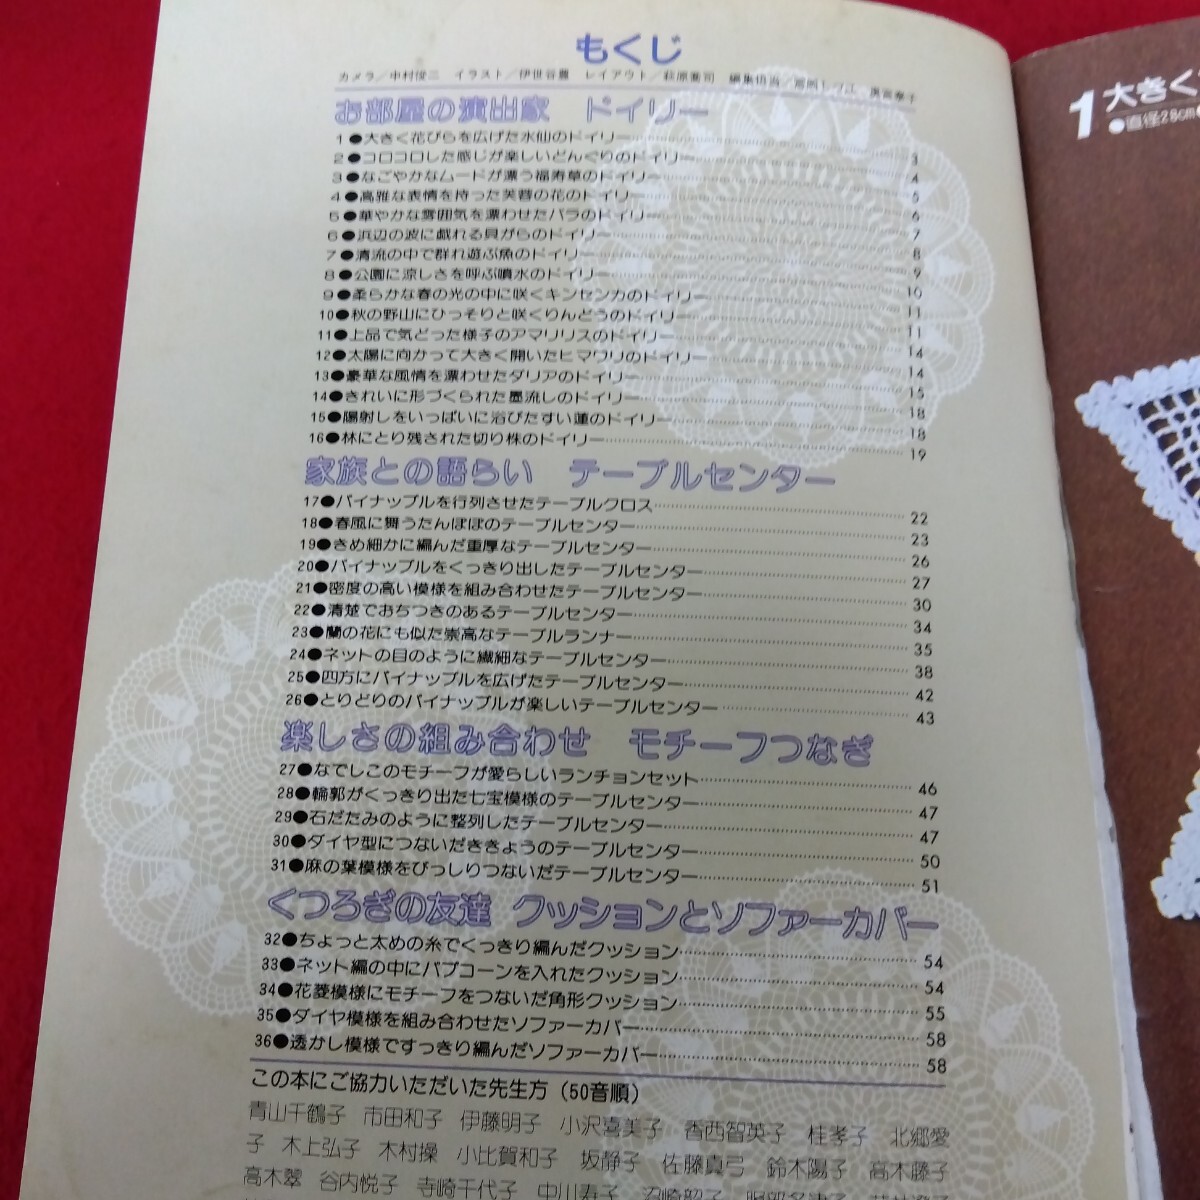 もくじ
カメラ／中村俊二　イラスト／伊世谷農　レイアウト／萩原憲司　編集担当／
お部屋の演出家　ドイリー
1●大きく花びらを広げた水仙のドイリー 3
2●コロコロした感じが楽しいどんぐりのドイリー 4
3●なごやかなムードが漂う福寿草のドイリー 5
4●高雅な表情を持った芙蓉の花のドイリー 6
5●華やかな雰囲気を漂わせたバラのドイリー 7
6●浜辺の波に戯れる貝がらのドイリー 8
7●清流の中で群れ遊ぶ魚のドイリー 9
8●公園に涼しさを呼ぶ噴水のドイリー 10
9●柔らかな春の光の中に咲くキンセンカのドイリー 11
10●秋の野山にひっそりと咲くりんどうのドイリー 11
11●上品で気どった様子のアマリリスのドイリー 14
12●太陽に向かって大きく開いたヒマワリのドイリー 14
13●豪華な風情を漂わせたダリアのドイリー 15
14●きれいに形づくられた墨流しのドイリー 18
15●陽射しをいっぱいに浴びたすい蓮のドイリー 18
16●林にとり残された切り株のドイリー 19
家族との語らい　テーブルセンター
17●パイナップルを行列させたテーブルクロス 22
18●春風に舞うたんぽぽのテーブルセンター 23
19●きめ細かに編んだ重厚なテーブルセンター 26
20●パイナップルをくっきり出したテーブルセンター 27
21●密度の高い模様を組み合わせたテーブルセンター 30
22●清楚でおちつきのあるテーブルセンター 34
23●蘭の花にも似た崇高なテーブルランナー 35
24●ネットの目のように繊細なテーブルセンター 38
25●四方にパイナップルを広げたテーブルセンター 42
26●とりどりのパイナップルが楽しいテーブルセンター 43
楽しさの組み合わせ　モチーフつなぎ
27●なでしこのモチーフが愛らしいランチョンセット 46
28●輪郭がくっきり出た七宝模様のテーブルセンター 47
29●石だたみのように整列したテーブルセンター 47
30●ダイヤ型につないだききょうのテーブルセンター 50
31●麻の葉模様をびっしりつないだテーブルセンター 51
くつろぎの友達　クッションとソファーカバー
32●ちょっと太めの糸でくっきり編んだクッション 54
33●ネット編の中にパプコーンを入れたクッション 54
34●花菱模様にモチーフをつないだ角形クッション 55
35●ダイヤ模様を組み合わせたソファーカバー 58
36●透かし模様ですっきり編んだソファーカバー 58
この本にご協力いただいた先生方（50音順）
青山千鶴子　市田和子　伊藤明子　小沢喜美子　香西智英子　桂孝子　北郷愛
子　木上弘子　木村操　小比賀和子　坂静子　佐藤真弓　鈴木陽子　高木藤子
高木翠　谷内悦子　寺崎千代子　中川寿子
1大きく
●直径28cm